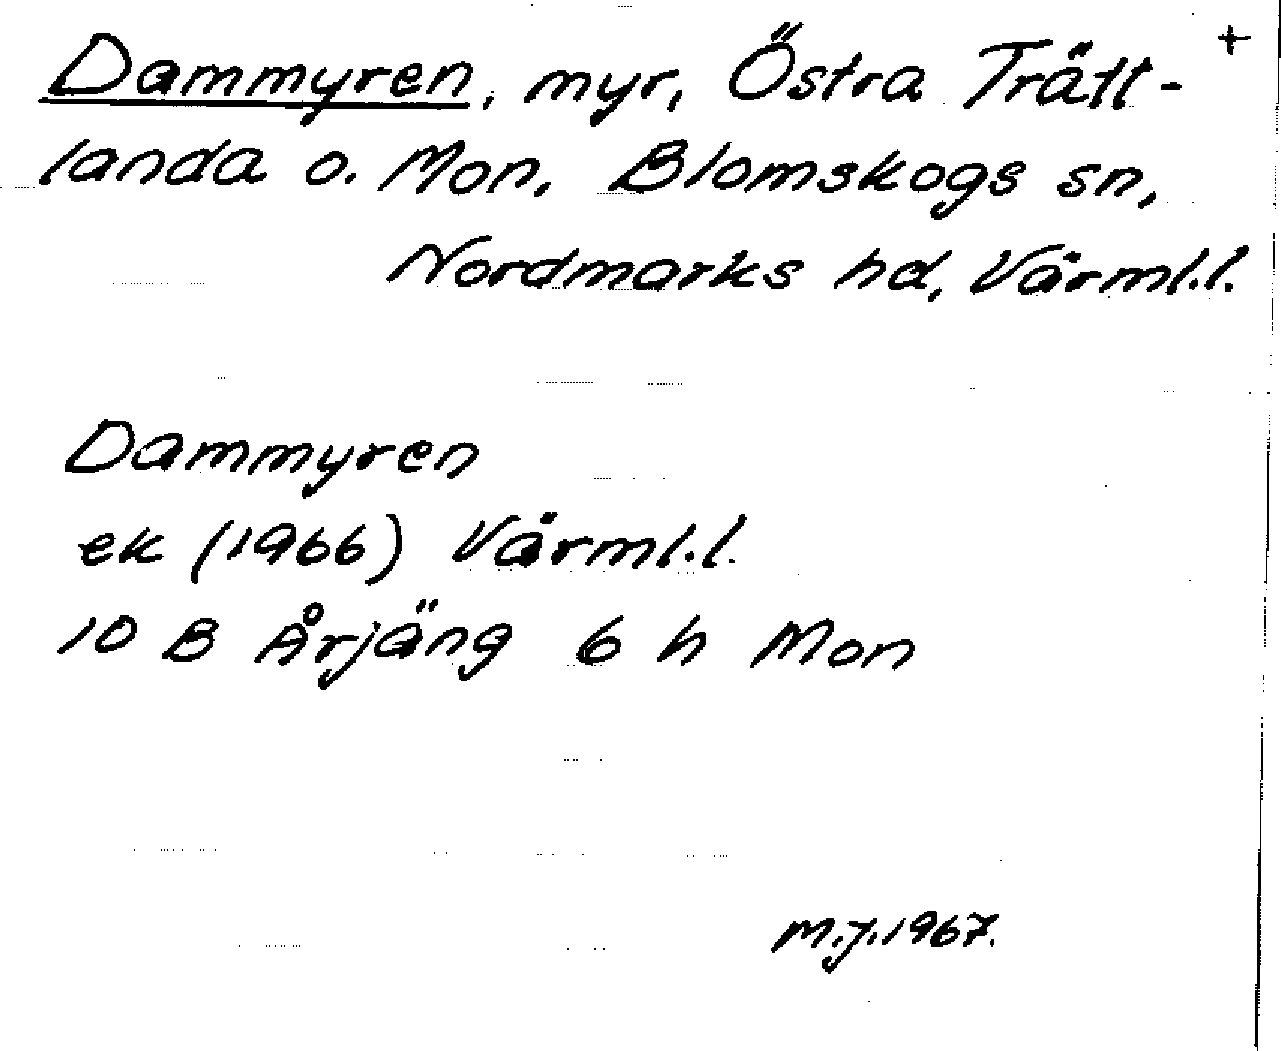 Dammyren, myr, Östra Trätt- +
landa o. Mon, Blomskogs sn,
Nordmarks hd, Värml.l.
Dammyren
ek (1966) Värml.l.
10 B Årjäng 6 h Mon
M.J.1967.